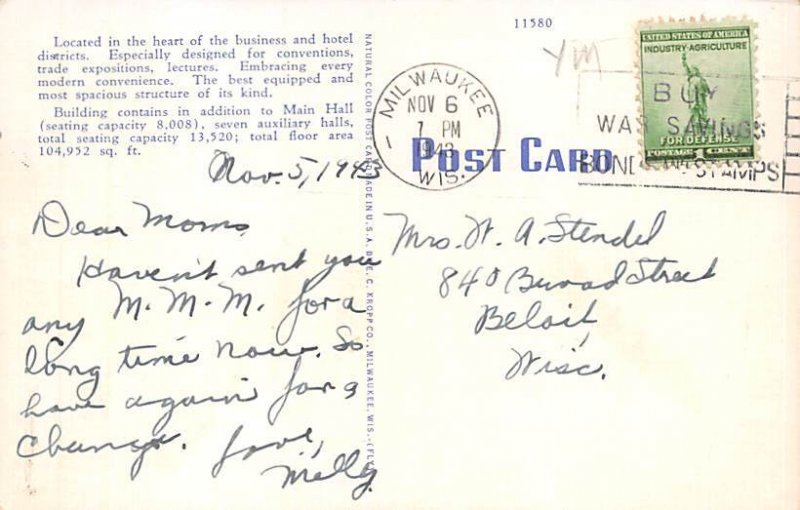 Located in the heart of the business and hotel
districts. Especially designed for conventions,
trade expositions, lectures. Embracing every
modern convenience. The best equipped and
most spacious structure of its kind.
Building contains in addition to Main Hall
(seating capacity 8,008), seven auxiliary halls,
total seating capacity 13,520; total floor area
104,952 sq. ft.
Nov. 5, 1943
Dear Moms,
Haven't sent you
any M. M. M. for a
long time now. So
have again for a
change. Love,
Melly
NATURAL COLOR POST CARD MADE IN U.S.A. BY E. C. KROPP CO., MILWAUKEE, WIS.
11580
YM
MILWAUKEE
NOV 6
7 PM
1943
WIS.
1
UNITED STATES OF AMERICA
INDUSTRY-AGRICULTURE
FOR DEFENSE
POSTAGE 1 CENT
BUY
WAR SAVINGS
BONDS STAMPS
POST CARD
Mrs. W. A. Stendel
840 Street
Beloit,
Wisc.